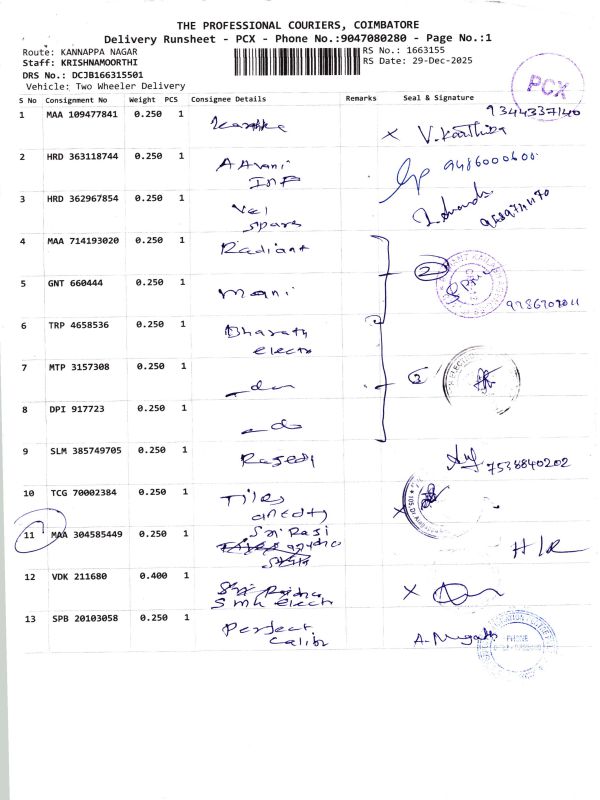 THE PROFESSIONAL COURIERS, COIMBATORE
Delivery Runsheet - PCX - Phone No.:9047080280 - Page No.:1
Route: KANNAPPA NAGAR
RS No.: 1663155
Staff: KRISHNAMOORTHI
RS Date: 29-Dec-2025
DRS No.: DCJB166315501
Vehicle: Two Wheeler Delivery
PCX
S No Consignment No Weight PCS Consignee Details Remarks Seal & Signature
9344337140
1 MAA 109477841 0.250 1 V.Karthika
2 HRD 363118744 0.250 1 AAvani 9486000600
INP
3 HRD 362967854 0.250 1 Vel
spares
4 MAA 714193020 0.250 1 Radiant 2
5 GNT 660444 0.250 1 mani
6 TRP 4658536 0.250 1 Bharath
electro
7 MTP 3157308 0.250 1 do 3
8 DPI 917723 0.250 1 do
9 SLM 385749705 0.250 1 7538840202
10 TCG 70002384 0.250 1 Tiles
11 MAA 304585449 0.250 1 Sri Rasi
H/R
12 VDK 211680 0.400 1
Smk elect
13 SPB 20103058 0.250 1 Perfect
Calib
PHONE